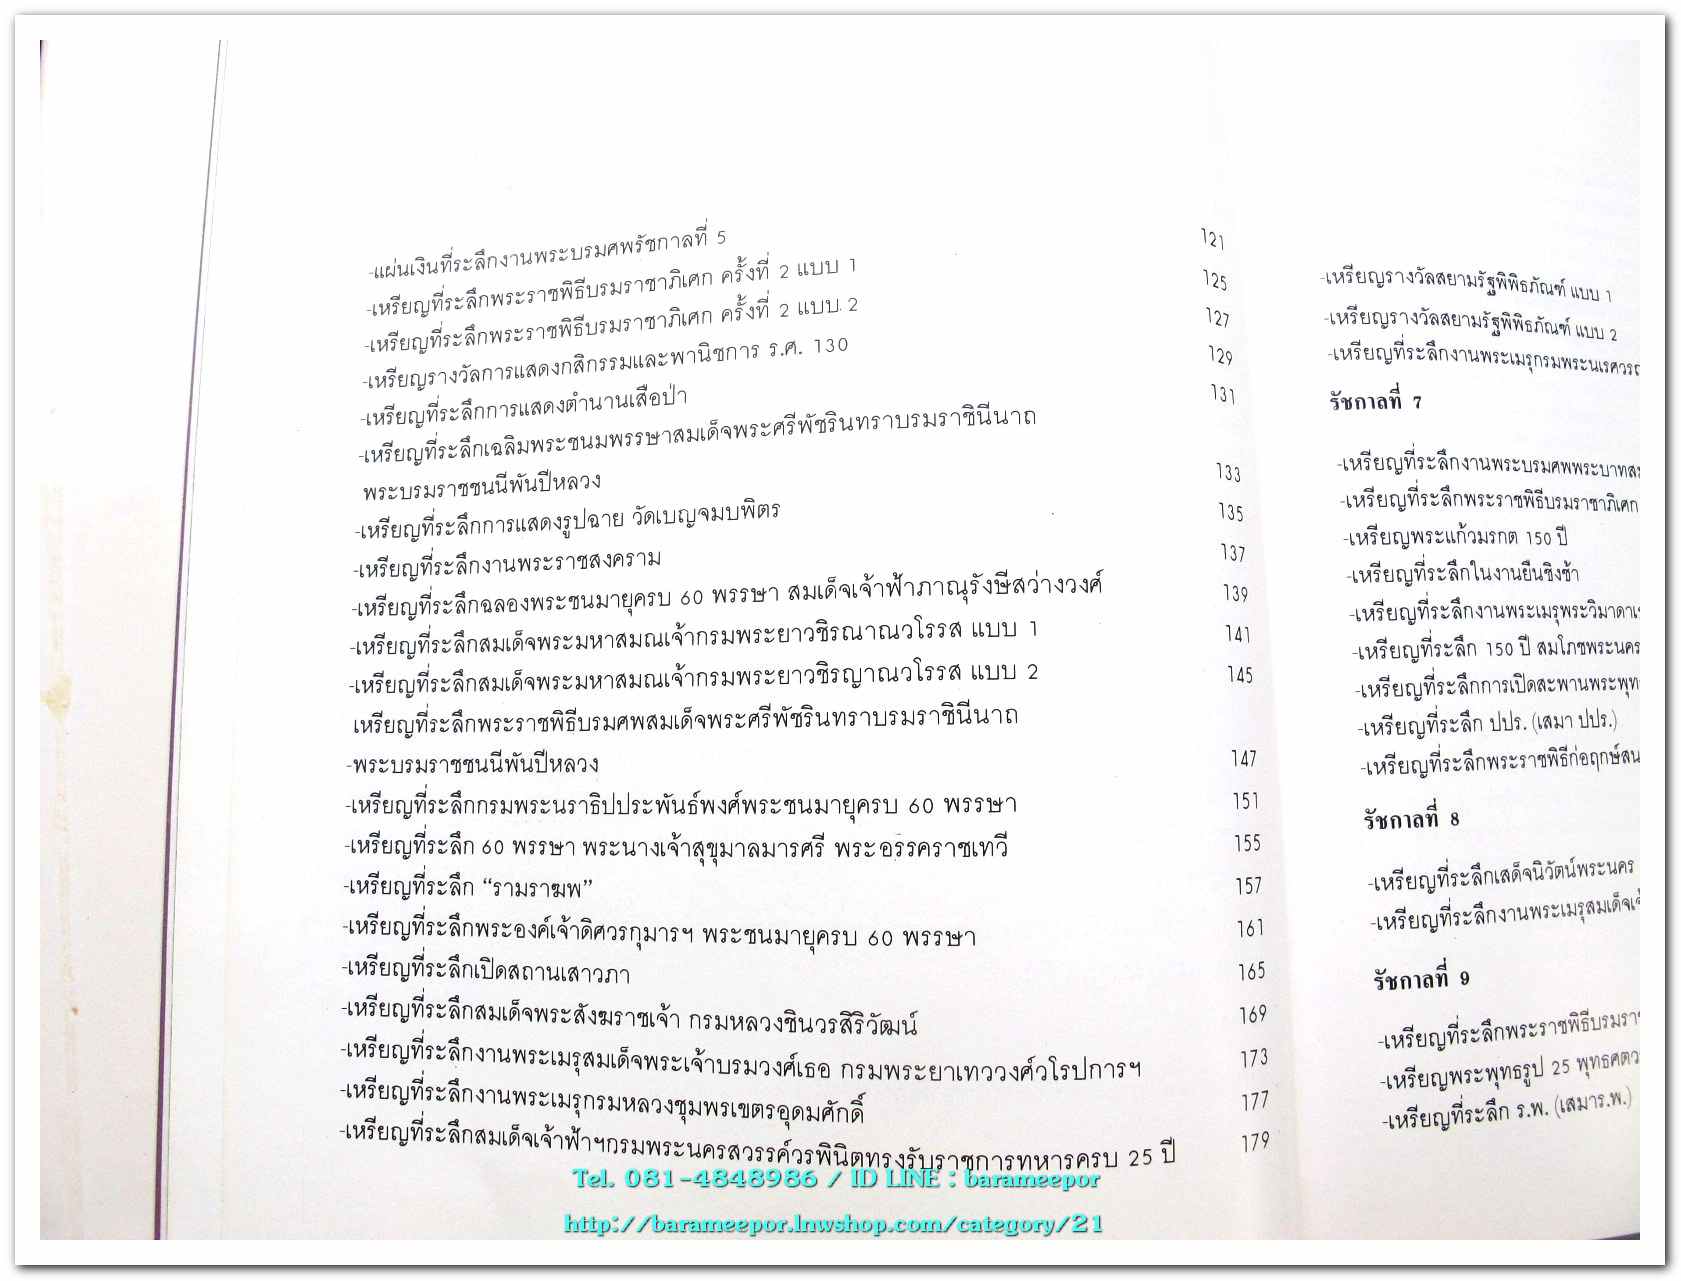 -แผ่นเงินที่ระลึกงานพระบรมศพรัชกาลที่ 5 121
-เหรียญที่ระลึกพระราชพิธีบรมราชาภิเศก ครั้งที่ 2 แบบ 1 125
-เหรียญที่ระลึกพระราชพิธีบรมราชาภิเศก ครั้งที่ 2 แบบ 2 127
-เหรียญรางวัลการแสดงกสิกรรมและพานิชการ ร.ศ. 130 129
-เหรียญที่ระลึกการแสดงตำนานเสือป่า 131
-เหรียญที่ระลึกเฉลิมพระชนมพรรษาสมเด็จพระศรีพัชรินทราบรมราชินีนาถ
พระบรมราชชนนีพันปีหลวง 133
-เหรียญที่ระลึกการแสดงรูปฉาย วัดเบญจมบพิตร 135
-เหรียญที่ระลึกงานพระราชสงคราม 137
-เหรียญที่ระลึกฉลองพระชนมายุครบ 60 พรรษา สมเด็จเจ้าฟ้าภาณุรังษีสว่างวงศ์ 139
-เหรียญที่ระลึกสมเด็จพระมหาสมณเจ้ากรมพระยาวชิรณาณวโรรส แบบ 1 141
-เหรียญที่ระลึกสมเด็จพระมหาสมณเจ้ากรมพระยาวชิรญาณวโรรส แบบ 2 145
เหรียญที่ระลึกพระราชพิธีบรมศพสมเด็จพระศรีพัชรินทราบรมราชินีนาถ
-พระบรมราชชนนีพันปีหลวง 147
-เหรียญที่ระลึกกรมพระนราธิปประพันธ์พงศ์พระชนมายุครบ 60 พรรษา 151
-เหรียญที่ระลึก 60 พรรษา พระนางเจ้าสุขุมาลมารศรี พระอรรคราชเทวี 155
-เหรียญที่ระลึก “รามราฆพ” 157
-เหรียญที่ระลึกพระองค์เจ้าดิศวรกุมารฯ พระชนมายุครบ 60 พรรษา 161
-เหรียญที่ระลึกเปิดสถานเสาวภา 165
-เหรียญที่ระลึกสมเด็จพระสังฆราชเจ้า กรมหลวงชินวรสิริวัฒน์ 169
-เหรียญที่ระลึกงานพระเมรุสมเด็จพระเจ้าบรมวงศ์เธอ กรมพระยาเทววงศ์วโรปการฯ 173
-เหรียญที่ระลึกงานพระเมรุกรมหลวงชุมพรเขตรอุดมศักดิ์ 177
-เหรียญที่ระลึกสมเด็จเจ้าฟ้าฯกรมพระนครสวรรค์วรพินิตทรงรับราชการทหารครบ 25 ปี 179
-เหรียญรางวัลสยามรัฐพิพิธภัณฑ์ แบบ 1
-เหรียญรางวัลสยามรัฐพิพิธภัณฑ์ แบบ 2
-เหรียญที่ระลึกงานพระเมรุกรมพระนเรศวร
รัชกาลที่ 7
-เหรียญที่ระลึกงานพระบรมศพพระบาท
-เหรียญที่ระลึกพระราชพิธีบรมราชาภิเศก
-เหรียญพระแก้วมรกต 150 ปี
-เหรียญที่ระลึกในงานยืนชิงช้า
-เหรียญที่ระลึกงานพระเมรุพระวิมาดา
-เหรียญที่ระลึก 150 ปี สมโภชพระนคร
-เหรียญที่ระลึกการเปิดสะพานพระพุท
-เหรียญที่ระลึก ปปร. (เสมา ปปร.)
-เหรียญที่ระลึกพระราชพิธีก่อฤกษ์
รัชกาลที่ 8
-เหรียญที่ระลึกเสด็จนิวัตน์พระนคร
-เหรียญที่ระลึกงานพระเมรุสมเด็จ
รัชกาลที่ 9
-เหรียญที่ระลึกพระราชพิธีบรมรา
-เหรียญพระพุทธรูป 25 พุทธศตว
-เหรียญที่ระลึก ร.พ. (เสมาร.พ.)
Tel. 081-4848986 / ID LINE : barameepor
http://barameepor.lnwshop.com/category/21